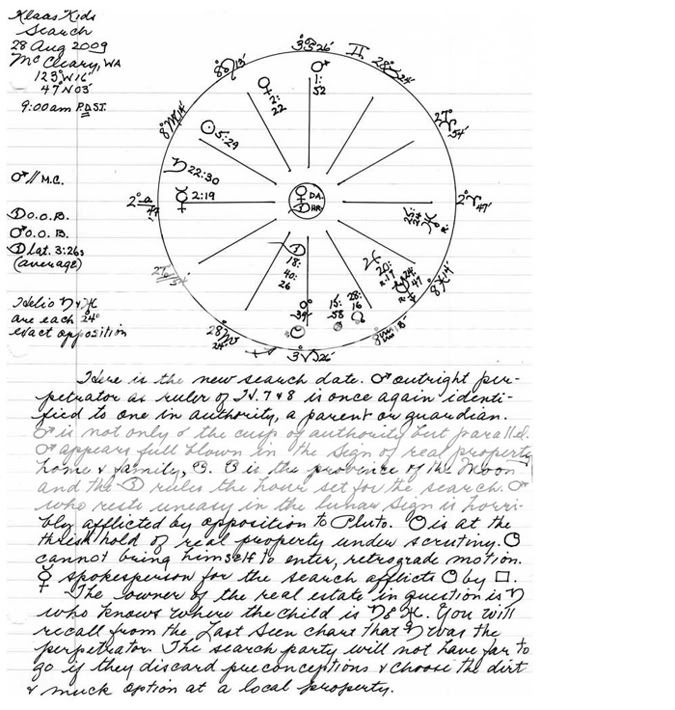 Klaas Kids
Search
28 Aug 2009
McCleary, WA
123°W16'
47°N03'
9:00am P.D.S.T.
♂ // M.C.
☽ O.O.B.
♂ O.O.B.
☽ lat. 3:26s
(average)
Helio ♄ & ♅
are each 24°
exact opposition
3♋26'
♂
1:
52
♀ 2:
22
☉ 5:29
♄ 22:30
☿ 2:19
♀ DA.
☽ HR.
2♈47'
☽
18:
40:
26
3♑26'
Here is the new search date. ♂ outright per-
petrator as ruler of H. 7 & 8 is once again identi-
fied to one in authority, a parent or guardian.
♂ is not only ☌ the cusp of authority but parallel.
♂ appears full blown in the sign of real property
home & family, ♋. ♋ is the province of the Moon
and the ☽ rules the hour set for the search. ♂
who rests uneasy in the lunar sign is horri-
bly afflicted by opposition to Pluto. is at the
threshhold of real property under scrutiny.
cannot bring himself to enter, retrograde motion.
☿ spokesperson for the search afflicts by □.
The owner of the real estate in question is ♄
who knows where the child is ♄☍♅. You will
recall from the Last Seen chart that ♄ was the
perpetrator. The search party will not have far to
go if they discard preconceptions & choose the dirt
& muck option at a local property.